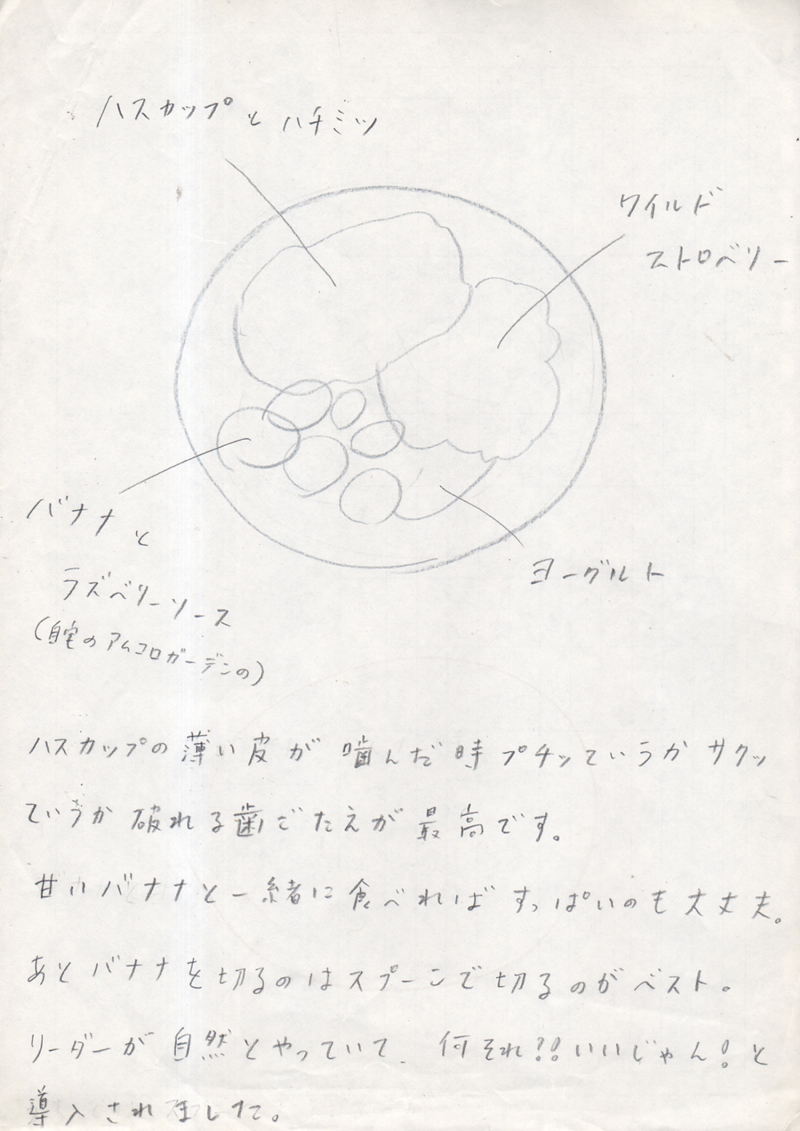 ハスカップとハチミツ
ワイルド
ストロベリー
バナナと
ラズベリーソース
(自宅のアムコロガーデンの)
ヨーグルト
ハスカップの薄い皮が噛んだ時プチッていうかサクッ
ていうか破れる歯ごたえが最高です。
甘いバナナと一緒に食べればすっぱいのも大丈夫。
あとバナナを切るのはスプーンで切るのがベスト。
リーダーが自然とやっていて、何それ!?いいじゃん!と
導入されました。